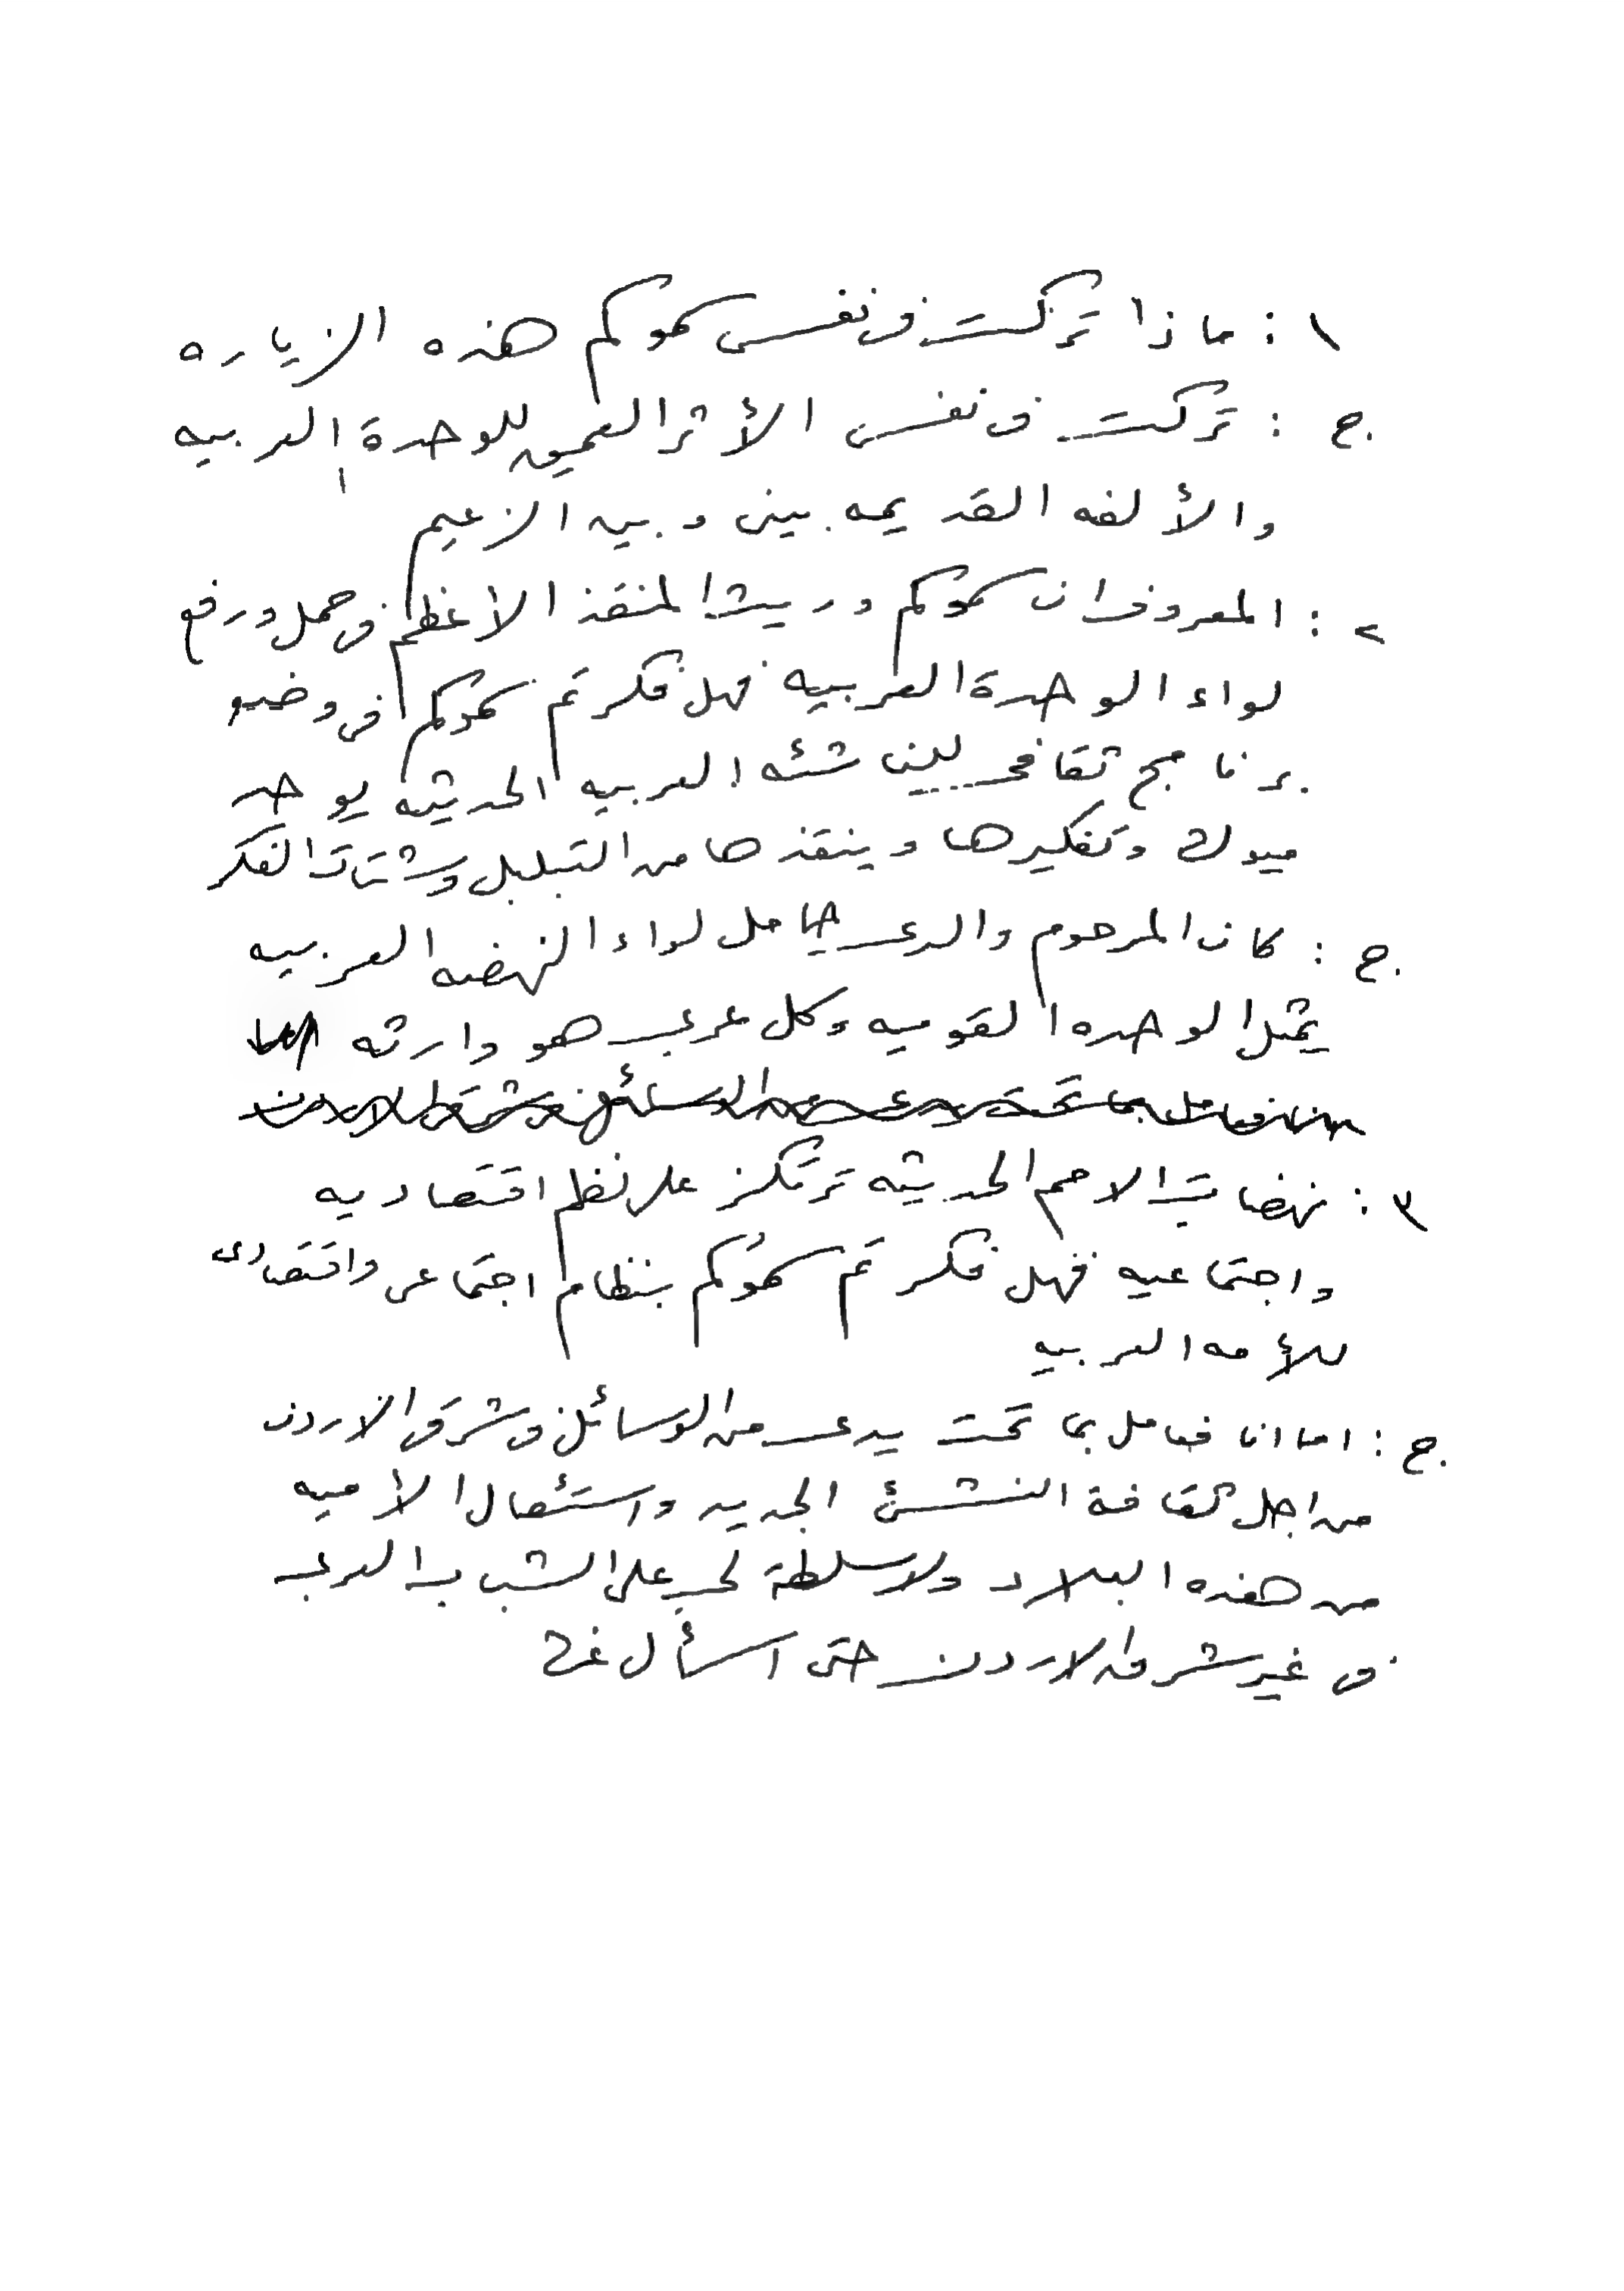 ١ : ماذا تركت فى نفس سموكم هذه الزياره
ج : تركت فى نفسى الأثر العميق للوحدة العربيه
والألفه القديمه بينى وبين الزعيم
٢ : المعروف ان سموكم وريث المنقذ الاعظم فى حمل ورفع
لواء الوحدة العربيه فهل فكرتم سموكم فى وضع
برنامج ثقافى للناشئه العربيه الحديثه يوحد
ميولها وتفكيرها وينقذها من التبلبل وشتات الفكر
ج : كان المرحوم والدى حامل لواء النهضه العربيه
يمثل الوحده القوميه وكل عربى هو وارثه
انا فعامل بما تحت يدى من الوسائل فى شرق الاردن
٣ : نهضات الامم الحديثه ترتكز على نظم اقتصاديه
واجتماعيه فهل فكرتم سموكم بنظام اجتماعى واقتصادى
للأمه العربيه
ج : اما انا فعامل بما تحت يدى من الوسائل فى شرق الاردن
من اجل ثقافة النشئ الجديد واستئصال الأميه
من هذه البلاد ولا سلطة لى على الشباب العربى
فى غير شرق الاردن حتى اسأل عنه